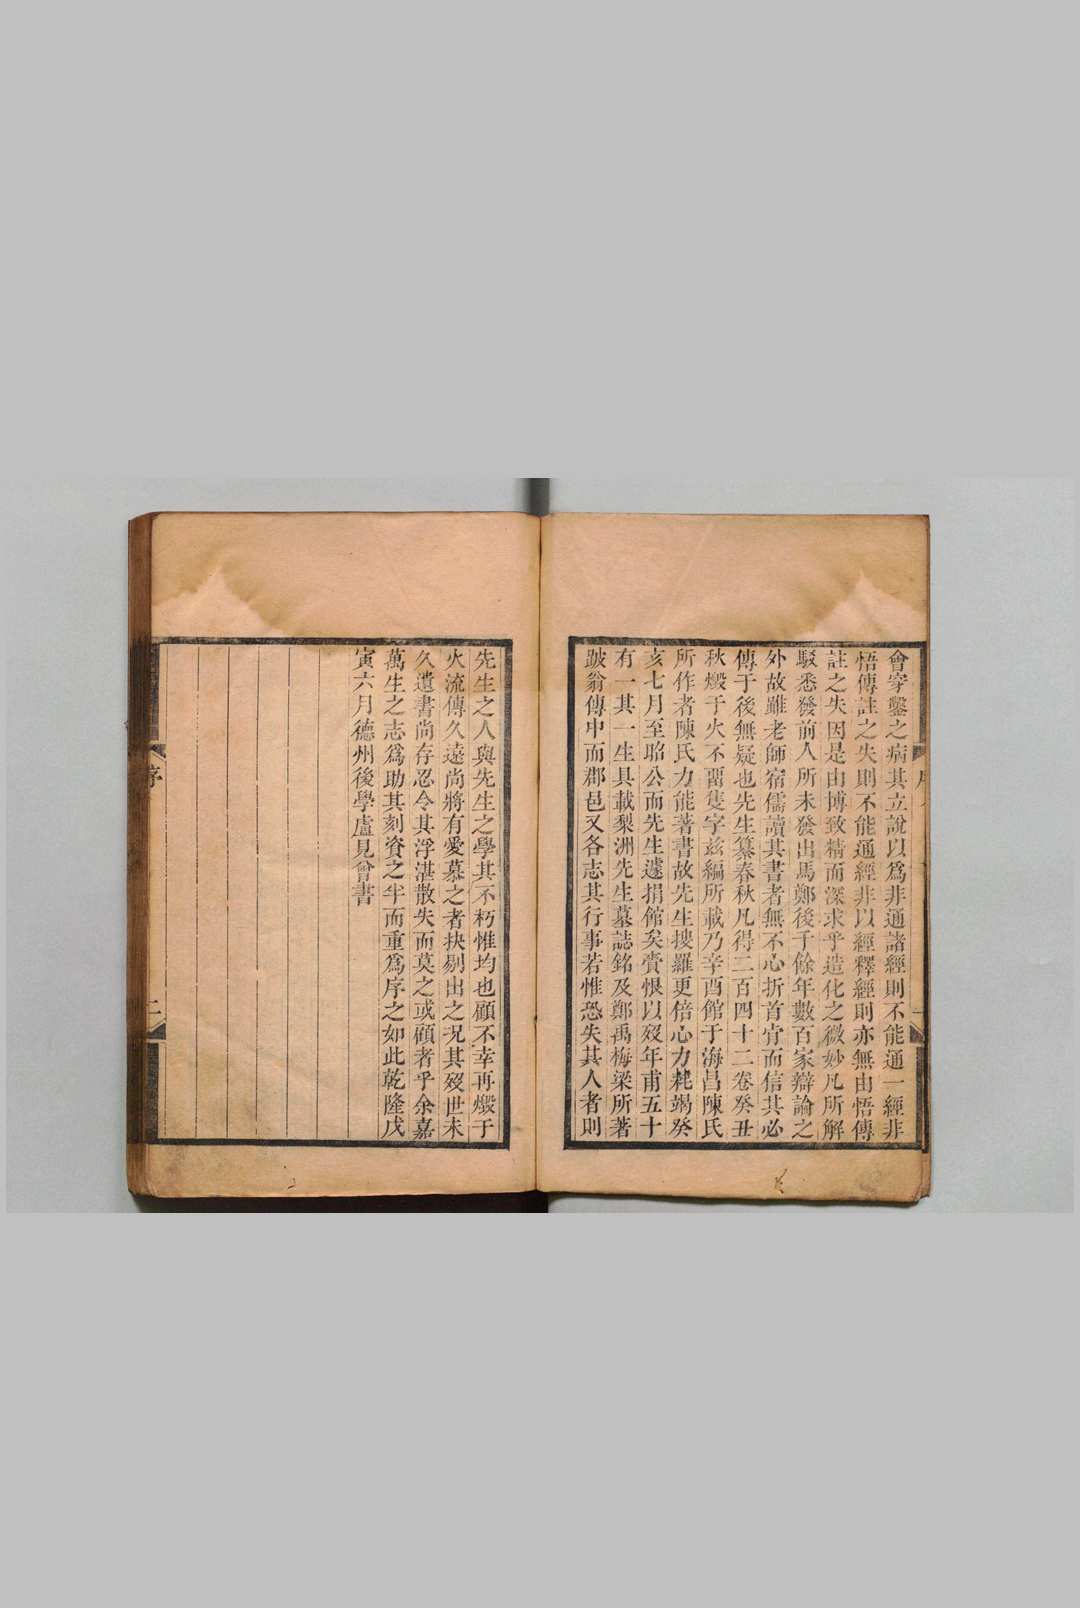 會穿鑿之病其立說以爲非通諸經則不能通一經非
悟傳註之失則不能通經非以經釋經則亦無由悟傳
註之失因是由博致精而深求乎造化之微妙凡所解
駁悉發前人所未發出馬鄭後千餘年數百家辯論之
外故雖老師宿儒讀其書者無不心折首肯而信其必
傳于後無疑也先生纂春秋凡得二百四十二卷癸丑
秋燬于火不畱隻字兹編所載乃辛酉館于海昌陳氏
所作者陳氏力能著書故先生搜羅更倍心力耗竭癸
亥七月至昭公而先生遽捐館矣賫恨以歿年甫五十
有一其一生具載梨洲先生墓誌銘及鄭禹梅梁所著
跛翁傳中而郡邑又各志其行事若惟恐失其人者則
先生之人與先生之學其不朽惟均也顧不幸再燬于
火流傳久遠尚將有愛慕之者抉剔出之况其歿世未
久遺書尚存忍令其浮湛散失而莫之或顧者乎余嘉
萬生之志爲助其刻資之半而重爲序之如此乾隆戊
寅六月德州後學盧見曾書
序
二